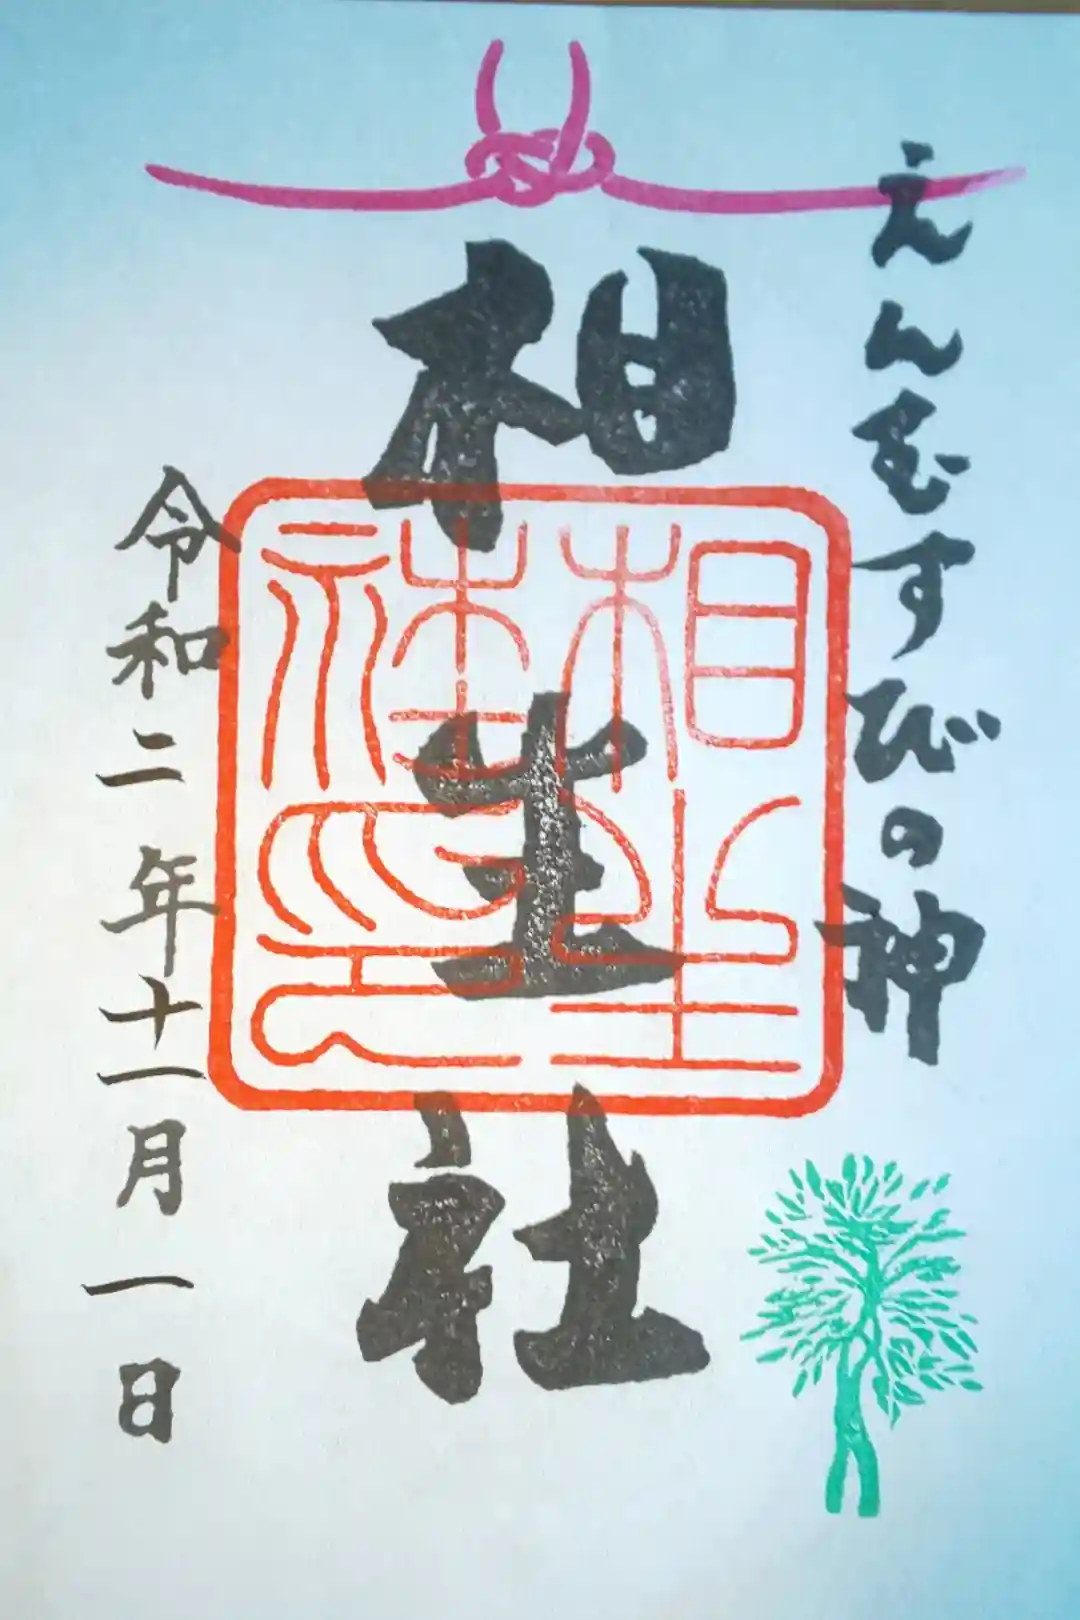 えんむすびの神
相生社
相生社神印
令和二年十一月一日